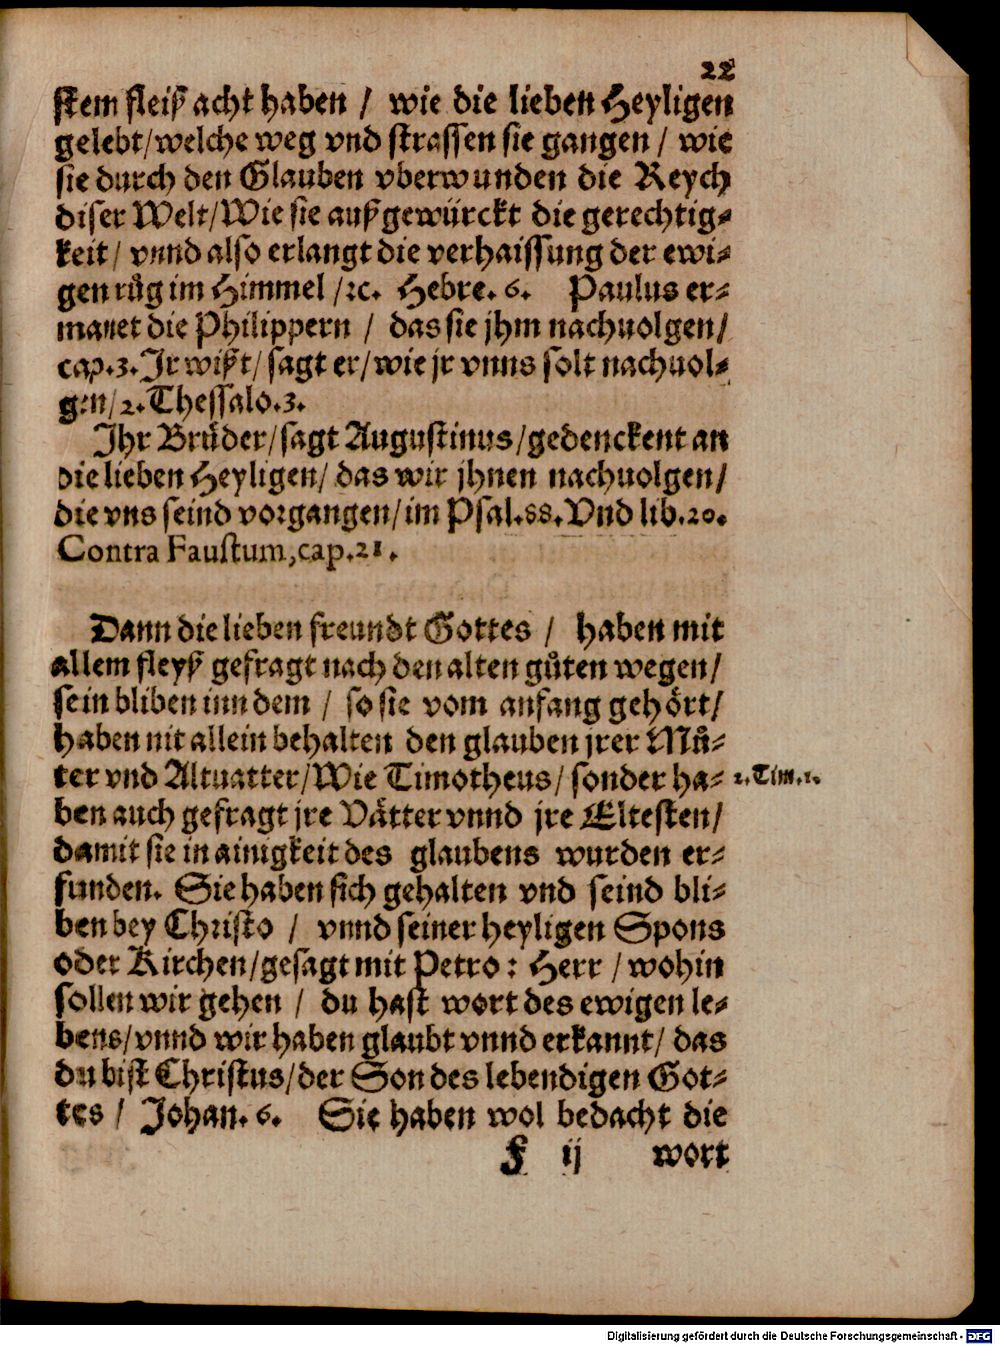 22
stem fleiß acht haben / wie die lieben Heyligen
gelebt/welche weg vnd strassen sie gangen / wie
sie durch den Glauben vberwunden die Reych
diser Welt/Wie sie außgewürckt die gerechtig-
keit / vnnd also erlangt die verhaissung der ewi-
gen růg im Himmel /ꝛc. Hebre. 6. Paulus er-
manet die Philippern / das sie jhm nachuolgen/
cap.3. Jr wißt/ sagt er/wie jr vnns solt nachuol-
gen/2.Thessalo.3.
Jhr Brüder/sagt Augustinus/gedenckent an
die lieben Heyligen/ das wir jhnen nachuolgen/
die vns seind vorgangen/im Psal.88.Vnd lib.20.
Contra Faustum,cap.21.
Dann die lieben freundt Gottes / haben mit
allem fleyß gefragt nach den alten gůten wegen/
sein bliben inn dem / so sie vom anfang gehört/
haben nit allein behalten den glauben jrer Můt-
ter vnd Altuatter/Wie Timotheus/ sonder ha-
2.Tim.1.
ben auch gefragt jre Vätter vnnd jre Eltesten/
damit sie in ainigkeit des glaubens wurden er-
funden. Sie haben sich gehalten vnd seind bli-
ben bey Christo / vnnd seiner heyligen Spons
oder Kirchen/gesagt mit Petro: Herr / wohin
sollen wir gehen / du hast wort des ewigen le-
bens/vnnd wir haben glaubt vnnd erkannt/ das
du bist Christus/der Son des lebendigen Got-
tes / Johan. 6. Sie haben wol bedacht die
F ij wort
Digitalisierung gefördert durch die Deutsche Forschungsgemeinschaft - DFG